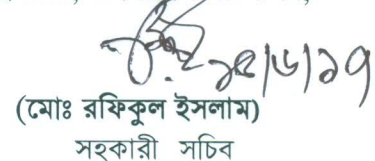 ১৫/৬/১৭
(মোঃ রফিকুল ইসলাম)
সহকারী সচিব